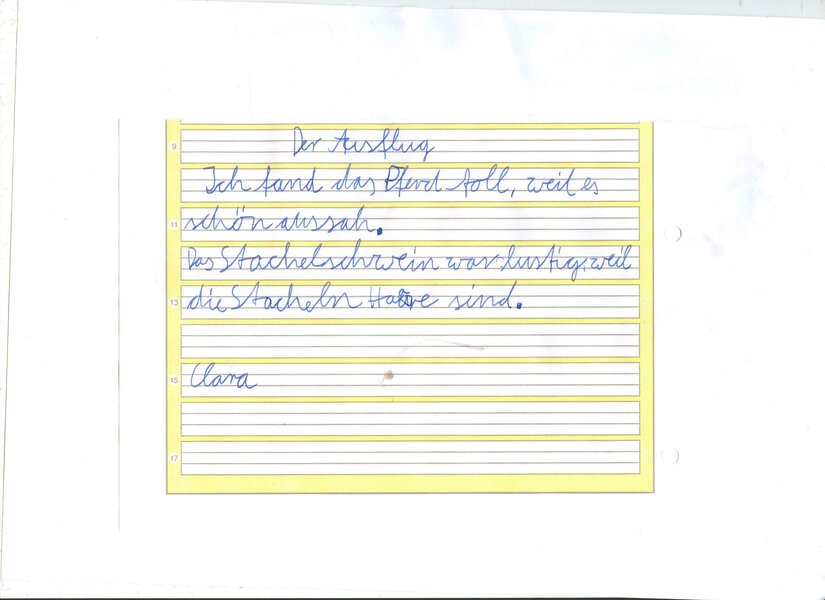 9 Der Ausflug
Ich fand das Pferd toll, weil es
11 schön aussah.
Das Stachelschwein war lustig, weil
13 die Stacheln Haare sind.
15 Clara
17